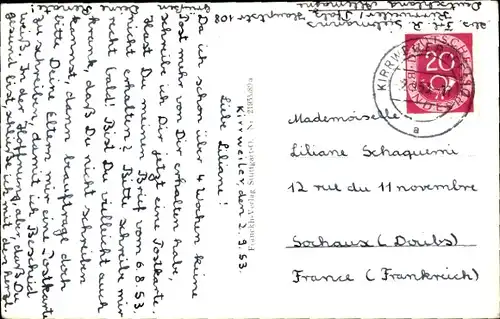 Abs. Frl. R.
Kirrweiler / Pfalz Hauptstr 108
Deutschland
Kirrweiler, den 2.9.53.
Liebe Liliane!
Da ich schon über 4 Wochen keine
Post mehr von Dir erhalten habe,
schreibe ich Dir jetzt eine Postkarte.
Hast Du meinen Brief vom 6.8.53.
nicht erhalten? Bitte schreibe mir
recht bald! Bist Du vielleicht auch
krank, daß Du nicht schreiben
kannst, dann beauftrage doch
bitte Deine Eltern mir eine Postkarte
zu schreiben, damit ich Bescheid
weiß. In der Hoffnung aber, daß Du
gesund bist schließe ich mit den herzl.
Franckh-Verlag Stuttgart
DEUTSCHE BUNDESPOST
20
KIRRWEILER
a
Mademoiselle
Liliane Schaquemi
12 rue du 11 novembre
Sochaux (Doubs)
France (Frankreich)